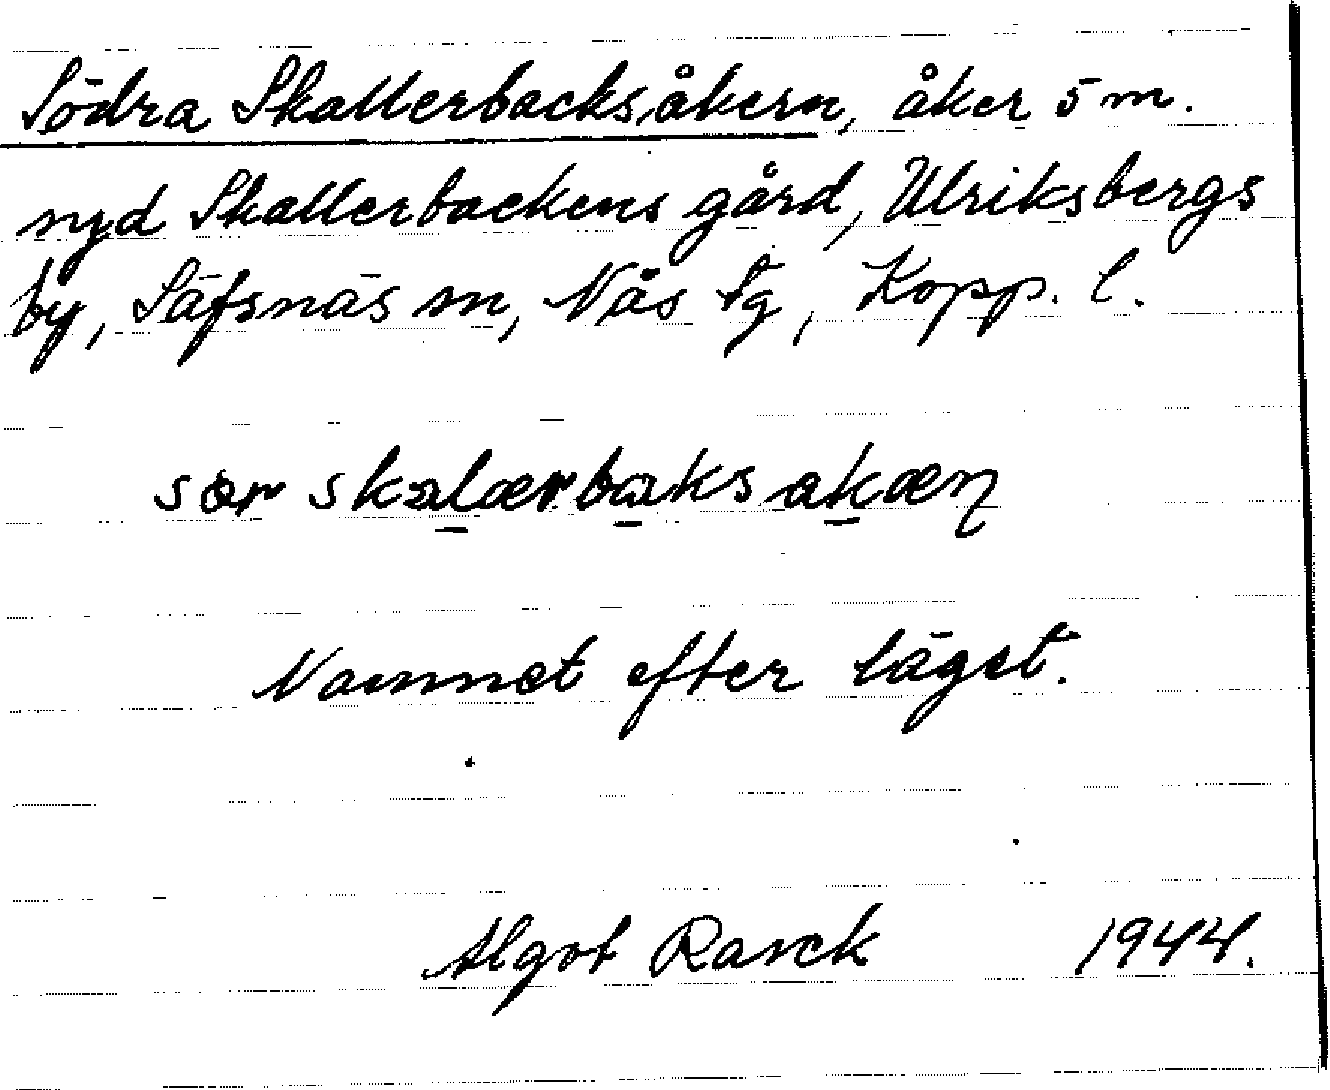 Södra Skallerbacksåkern, åker 5 m.
nyd Skallerbackens gård, Ulriksbergs
by, Säfsnäs sn, Nås tg, Kopp. l.
sør skalærbaks akæɳ
Namnet efter läget.
Algot Rarck 1944.